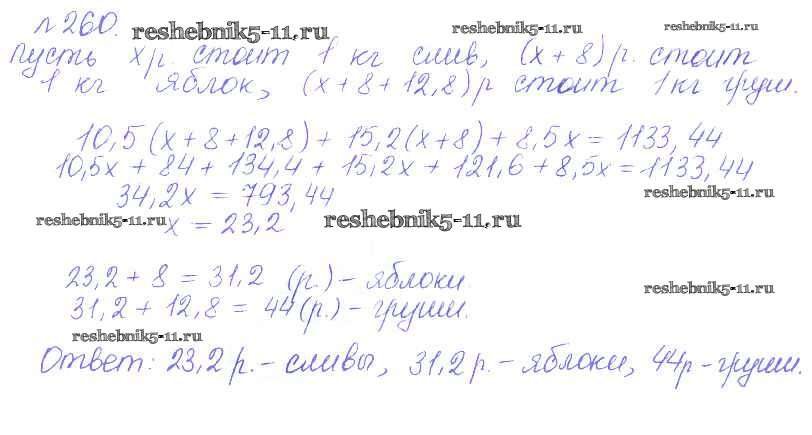 №260. reshebnik5-11.ru reshebnik5-11.ru reshebnik5-11.ru
Пусть x р. стоит 1 кг слив, (x + 8) р. стоит
1 кг яблок, (x + 8 + 12,8) р стоит 1 кг груш.
10,5 (x + 8 + 12,8) + 15,2 (x + 8) + 8,5x = 1133,44
10,5x + 84 + 134,4 + 15,2x + 121,6 + 8,5x = 1133,44
34,2x = 793,44 reshebnik5-11.ru
reshebnik5-11.ru x = 23,2 reshebnik5-11.ru
23,2 + 8 = 31,2 (р.) - яблоки.
31,2 + 12,8 = 44 (р.) - груши. reshebnik5-11.ru
reshebnik5-11.ru
Ответ: 23,2 р. - сливы, 31,2 р. - яблоки, 44р - груши.